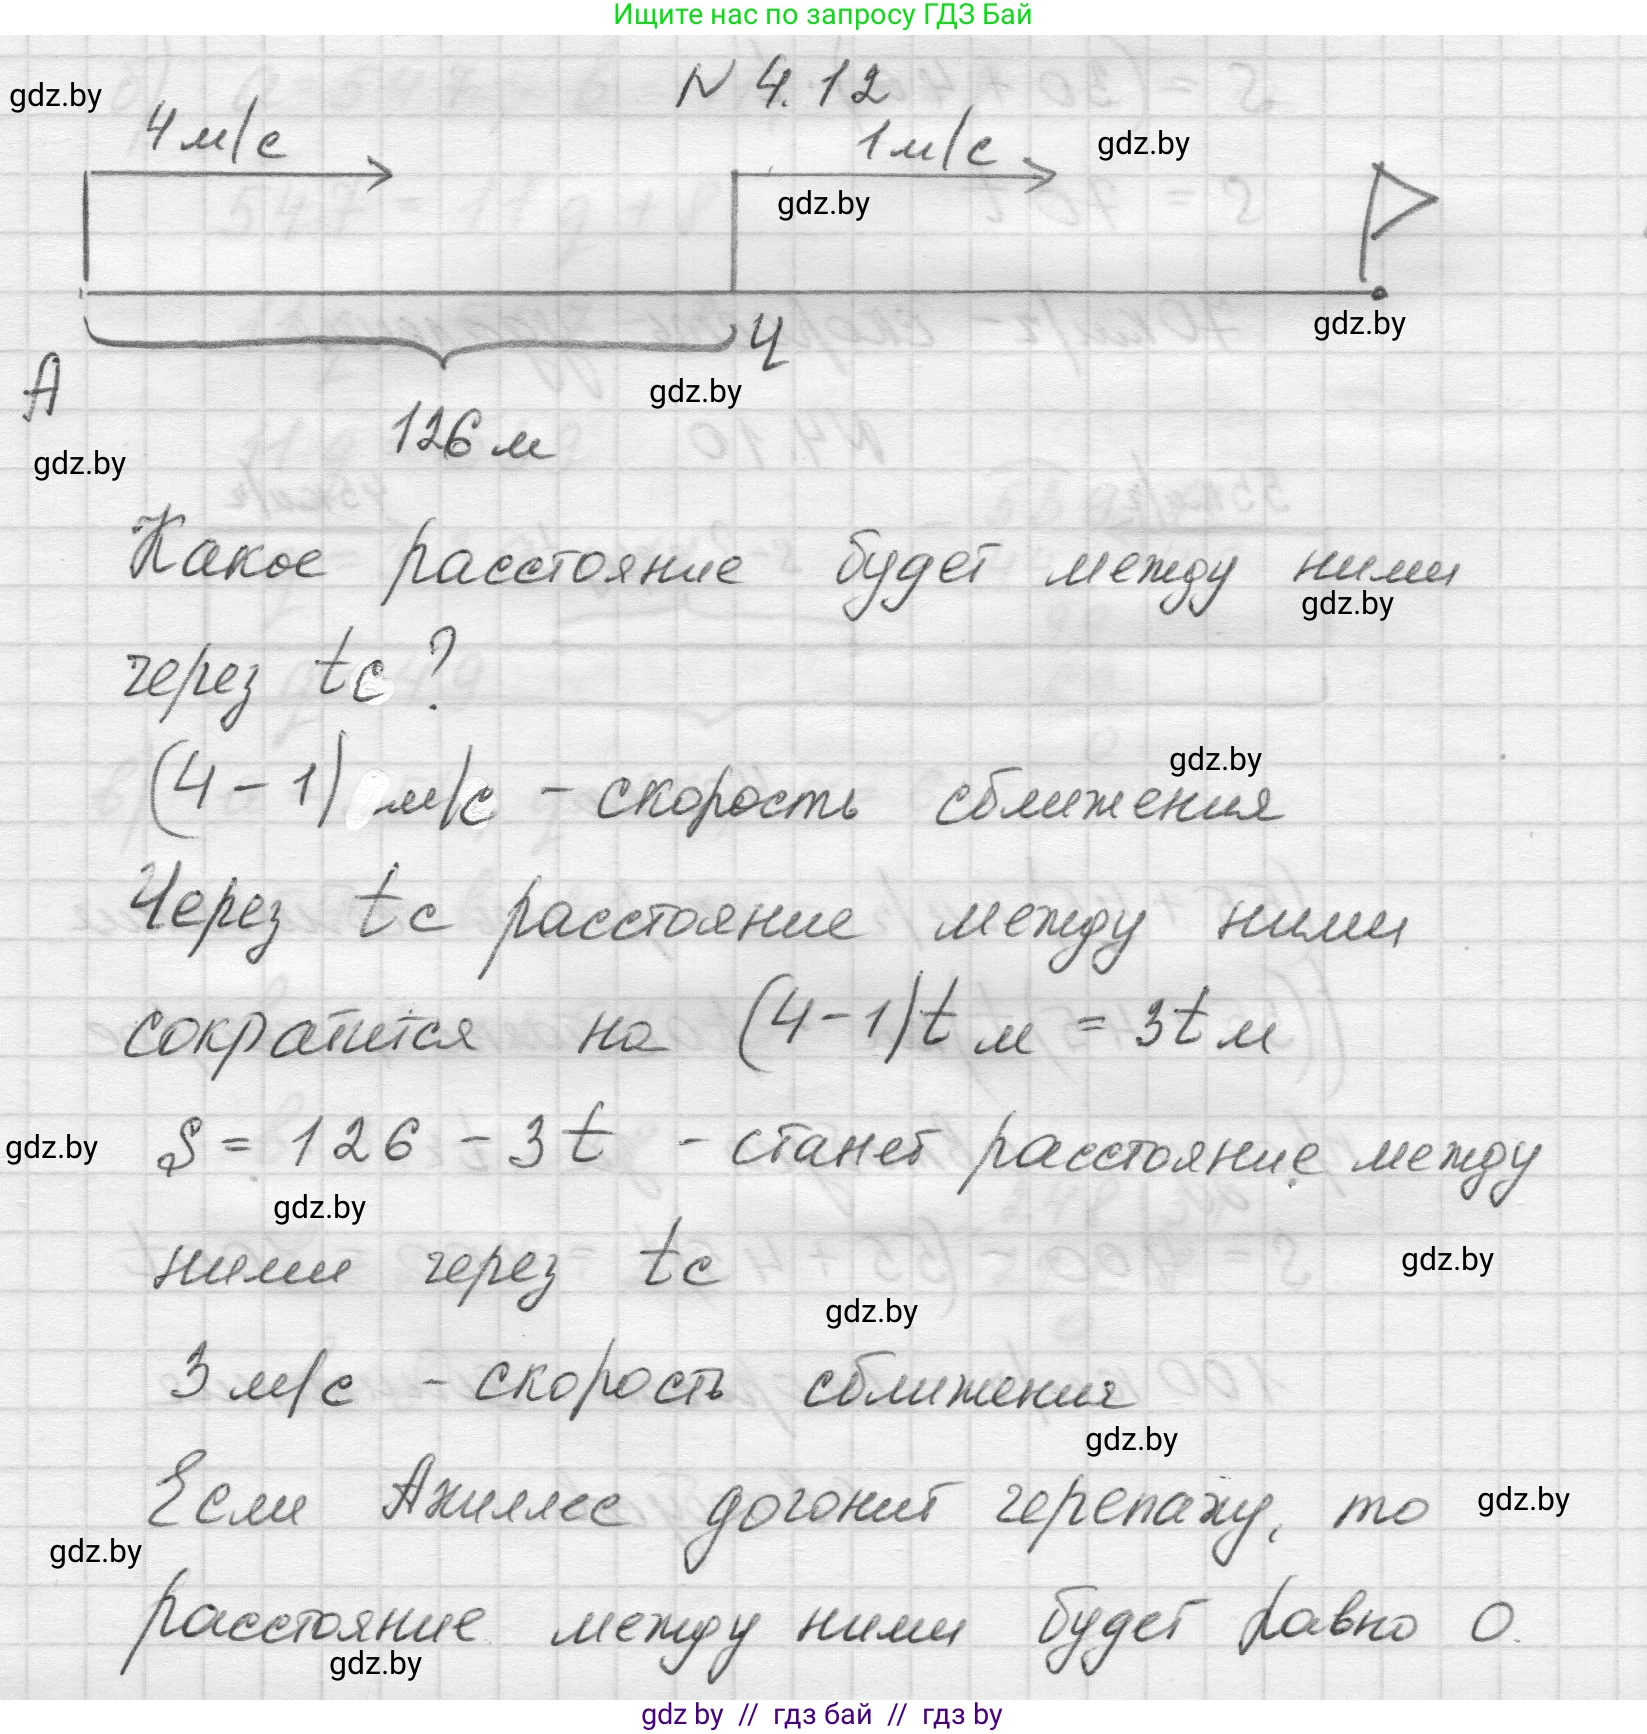 Ищите нас по запросу ГДЗ Бай
N 4.12
gdz.by
4 м/с
1 м/с
gdz.by
gdz.by
gdz.by
Ч
А
gdz.by
126 м
gdz.by
Какое расстояние будет между ними
gdz.by
через tс?
(4 - 1) м/с - скорость сближения
gdz.by
Через tс расстояние между ними
сократится на (4-1)t м = 3t м
S = 126 - 3t - станет расстояние между
gdz.by
gdz.by
ними через tс
gdz.by
gdz.by
3 м/с - скорость сближения
gdz.by
Если Ахиллес догонит черепаху, то
gdz.by
gdz.by
расстояние между ними будет равно 0.
gdz.by
gdz by // гдз бай // гдз by